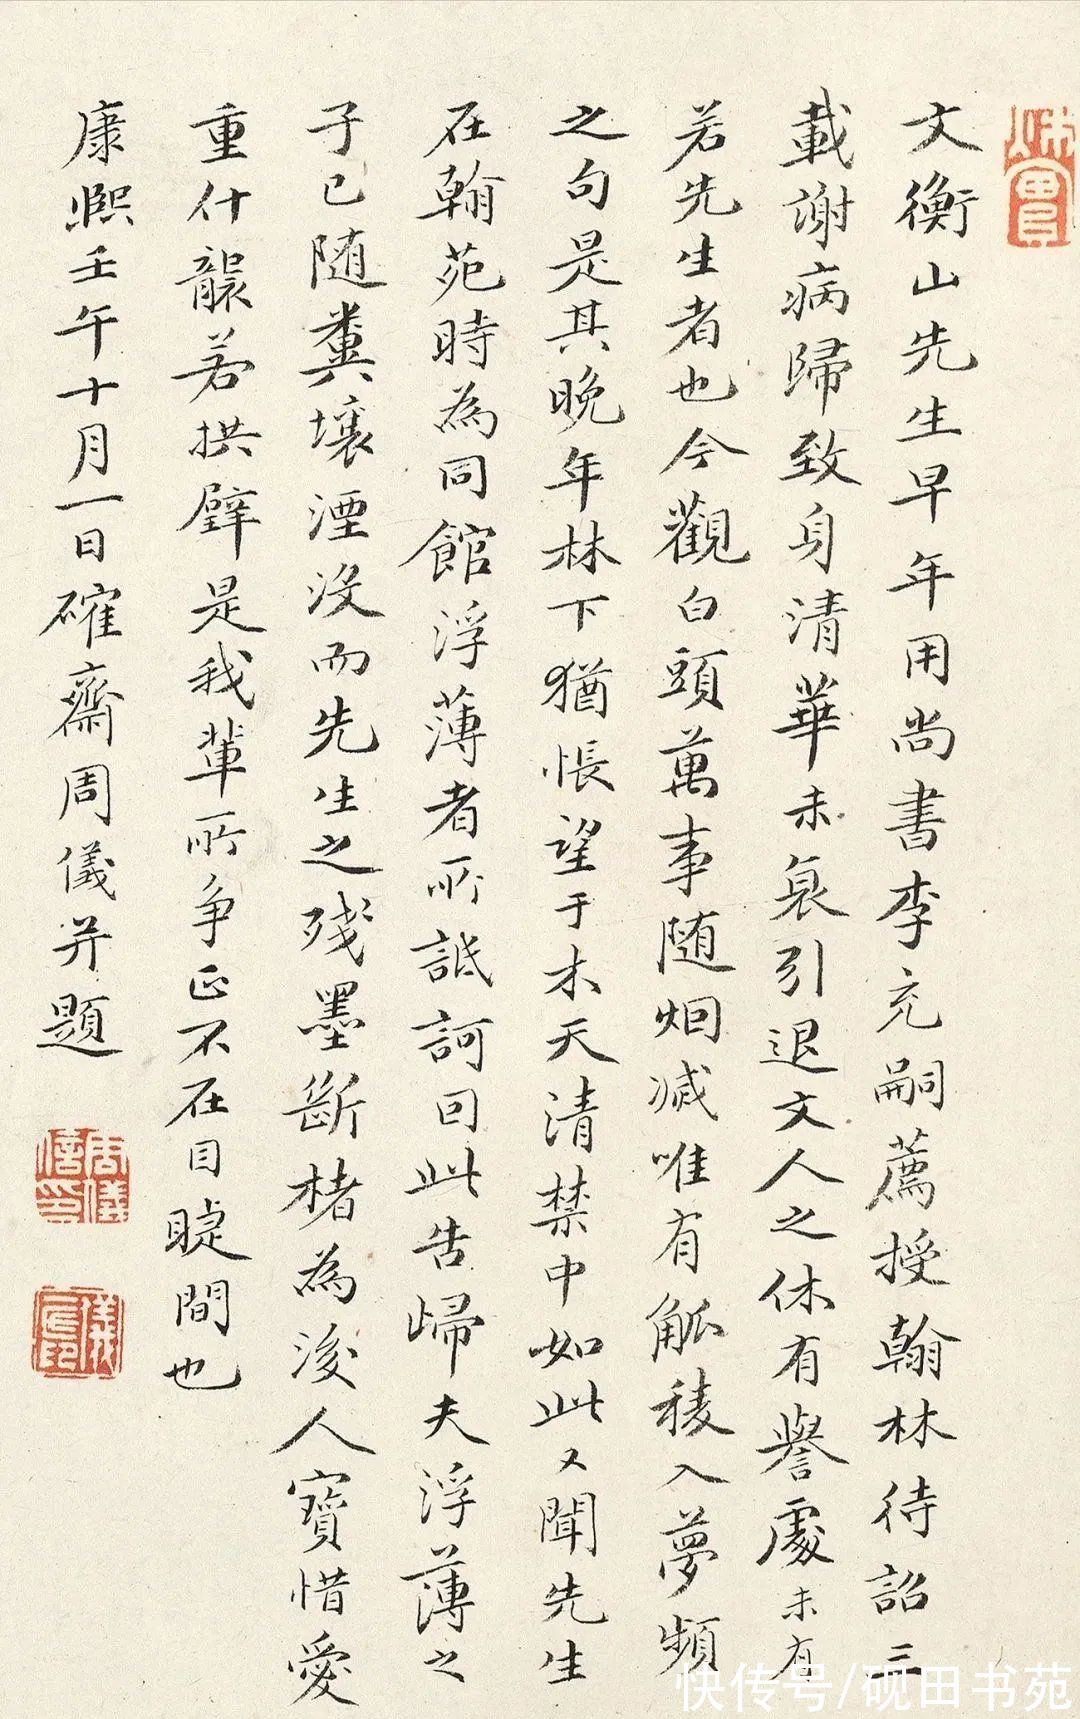 文衡山先生早年用尚書李充嗣薦授翰林待詔三
載謝病歸致身清華未衰引退文人之休有譽處未有
若先生者也今觀白頭萬事随烟减唯有觚稜入夢頻
之句是其晚年林下猶悵望于木天清禁中如此又聞先生
在翰苑時為同館浮薄者所詆訶回此告歸夫浮薄之
子已随糞壤湮没而先生之殘墨斷楮為後人寳惜愛
重什襲若拱璧是我輩所争正不在目睫間也
康熙壬午十月一日確齋周儀并題
周儀
快传号/砚田书苑